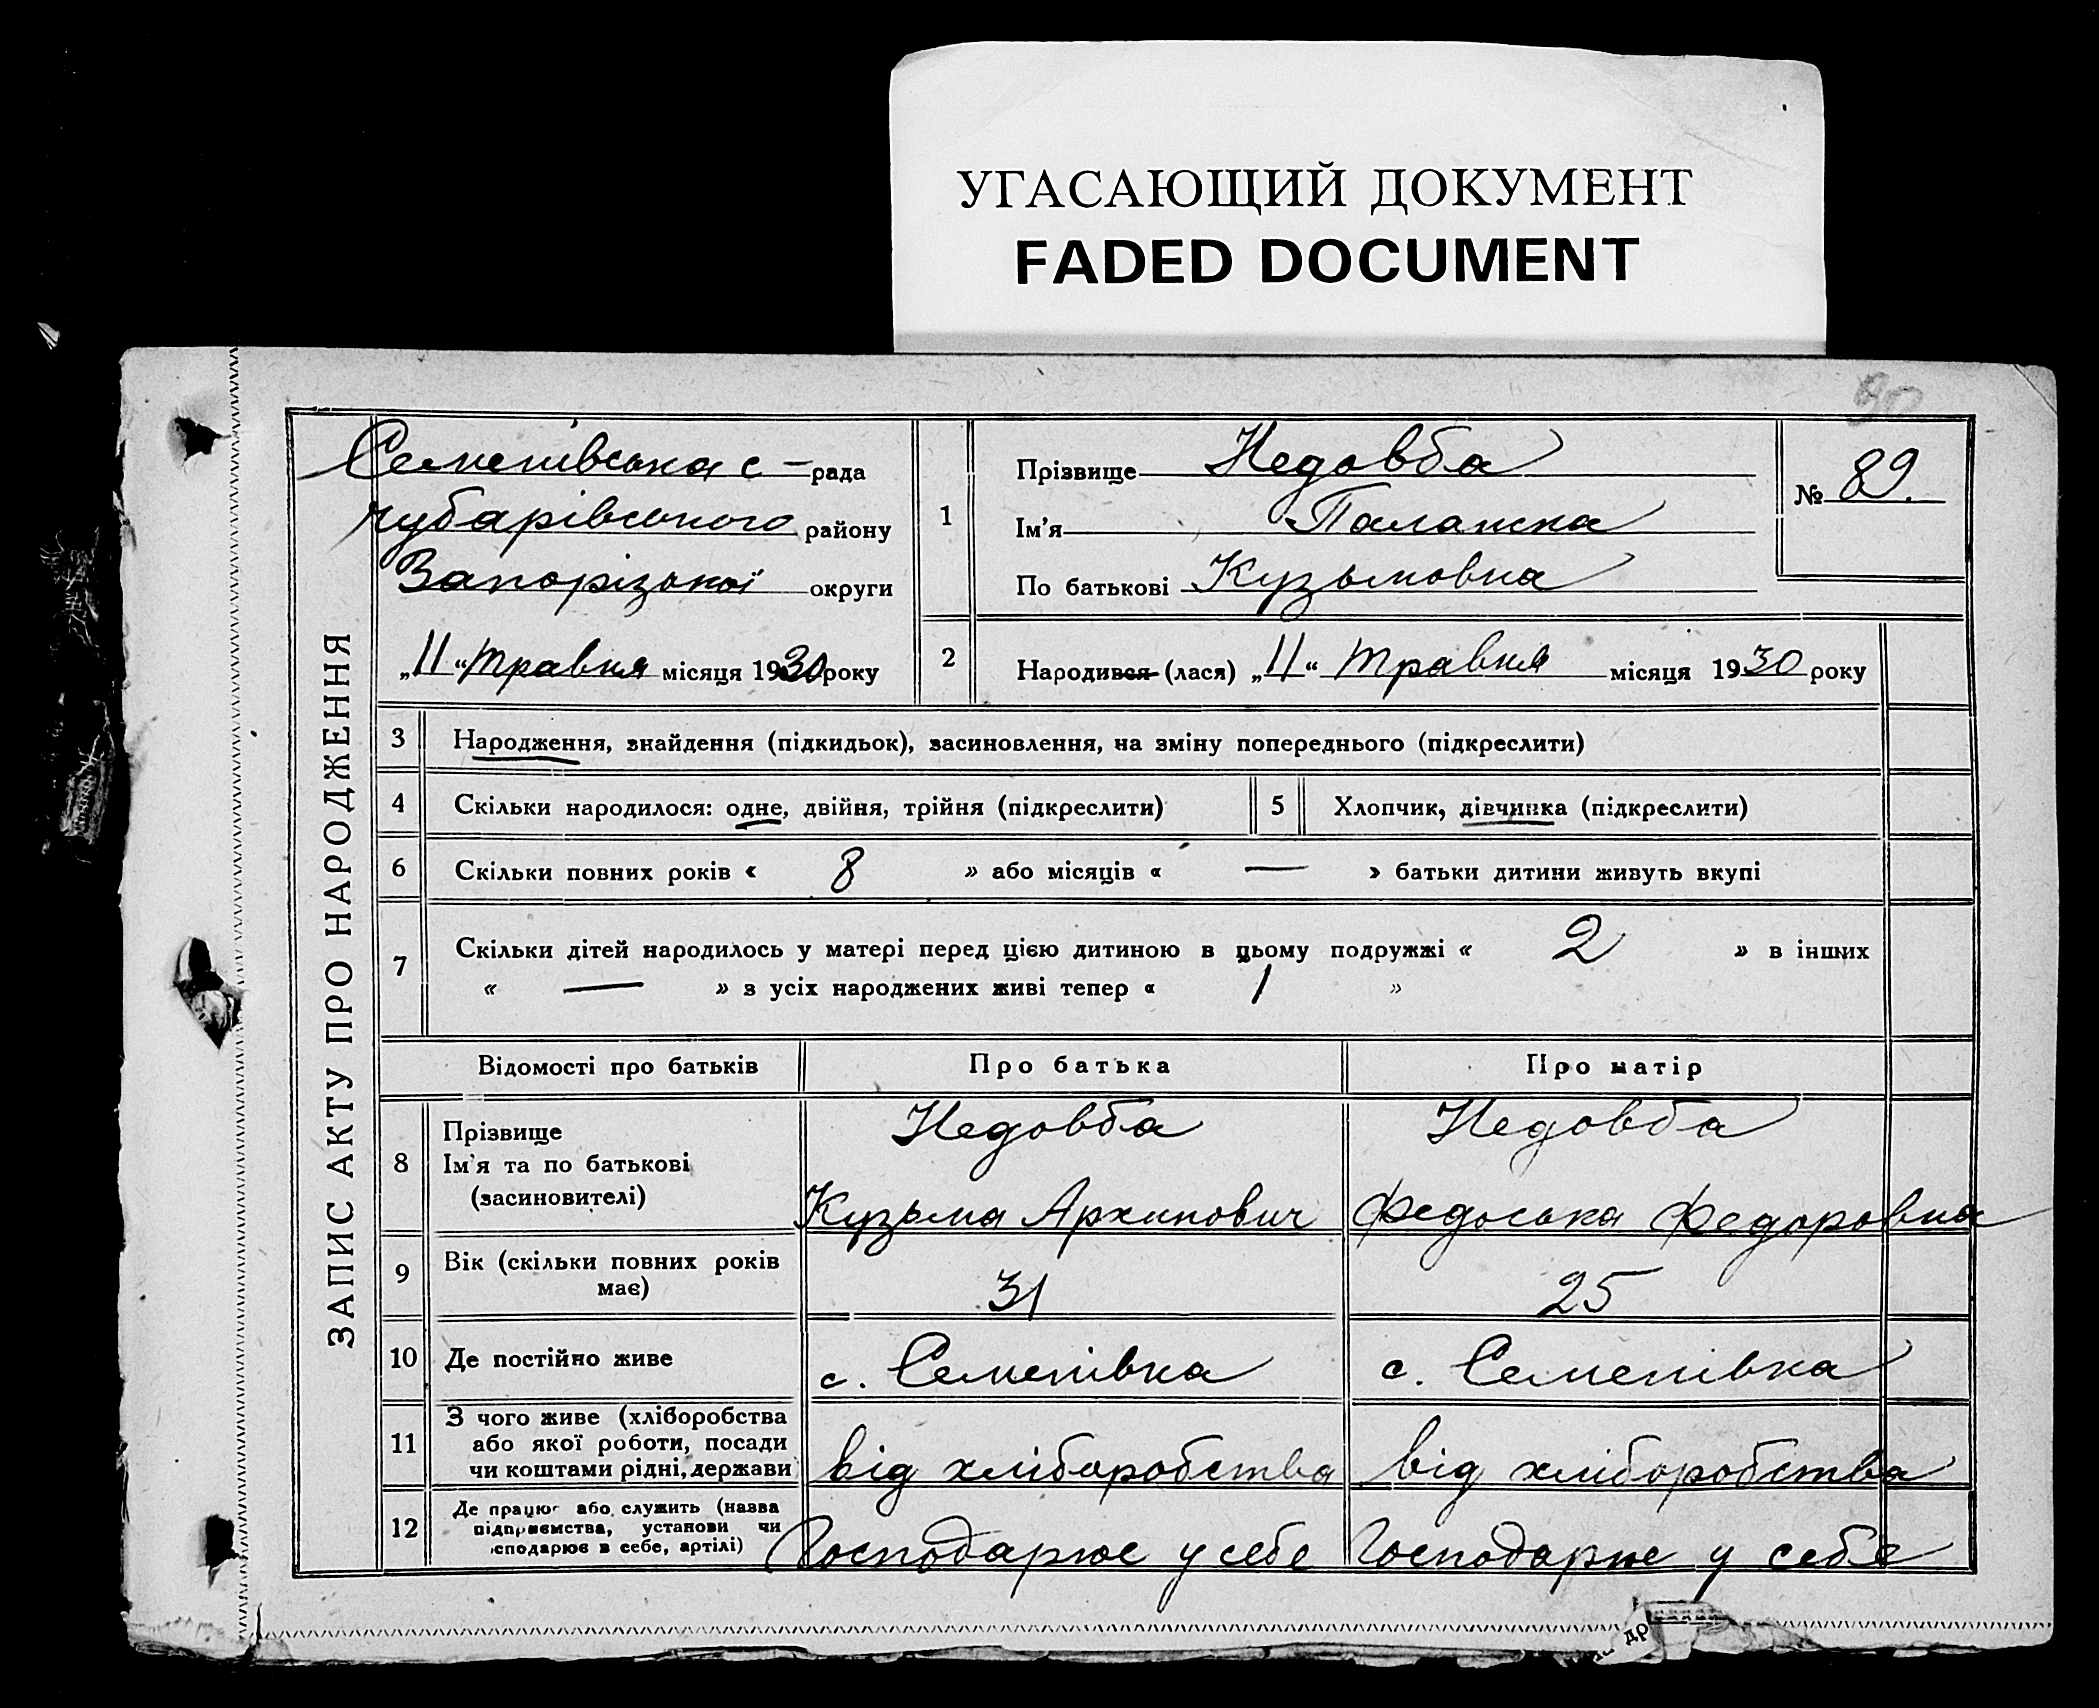 УГАСАЮЩИЙ ДОКУМЕНТ
FADED DOCUMENT
90
ЗАПИС АКТУ ПРО НАРОДЖЕННЯ
Семенівська с – рада
Чубарівського району
Запорізької округи
„11“ травня місяця 1930 року
1
Прізвище Недовба
Ім'я Палажка
По батькові Кузьмовна
№ 89.
2 Народився (лася) „11“ травня місяця 1930 року
3 Народження, знайдення (підкидьок), засиновлення, на зміну попереднього (підкреслити)
4 Скільки народилося: одне, двійня, трійня (підкреслити)
5 Хлопчик, дівчинка (підкреслити)
6 Скільки повних років « 8 » або місяців « — » батьки дитини живуть вкупі
7 Скільки дітей народилось у матері перед цією дитиною в цьому подружжі « 2 » в інших
« — » з усіх народжених живі тепер « 1 »
Відомості про батьків Про батька Про матір
8 Прізвище
Ім'я та по батькові
(засиновителі)
Недовба
Кузьма Архипович
Недовба
Федоська Федоровна
9 Вік (скільки повних років
має)
31
25
10 Де постійно живе
с. Семенівка
с. Семенівка
11 З чого живе (хліборобства
або якої роботи, посади
чи коштами рідні, держави
від хліборобства
від хліборобства
12 Де працює або служить (назва
підприємства, установи чи
сподарює в себе, артілі)
Господарює у себе
Господарює у себе
др